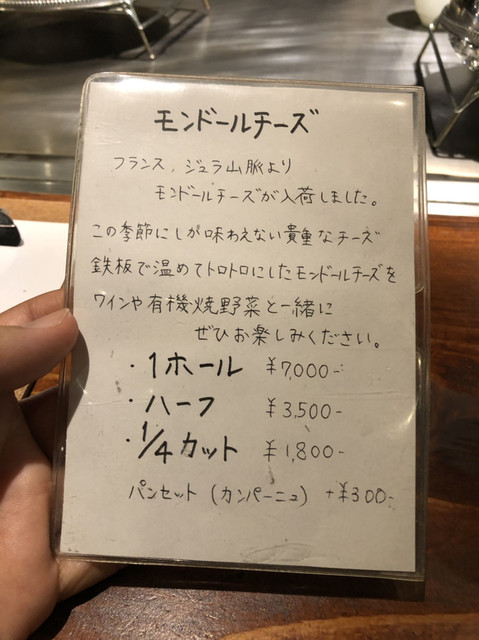 モンドールチーズ
フランス, ジュラ山脈より
モンドールチーズが入荷しました。
この季節にしが味わえない貴重なチーズ
鉄板で温めてトロトロにしたモンドールチーズを
ワインや有機焼野菜と一緒に
ぜひお楽しみください。
・1ホール ¥7,000-
・ハーフ ¥3,500-
・1/4カット ¥1,800-
パンセット (カンパーニュ) +¥300-